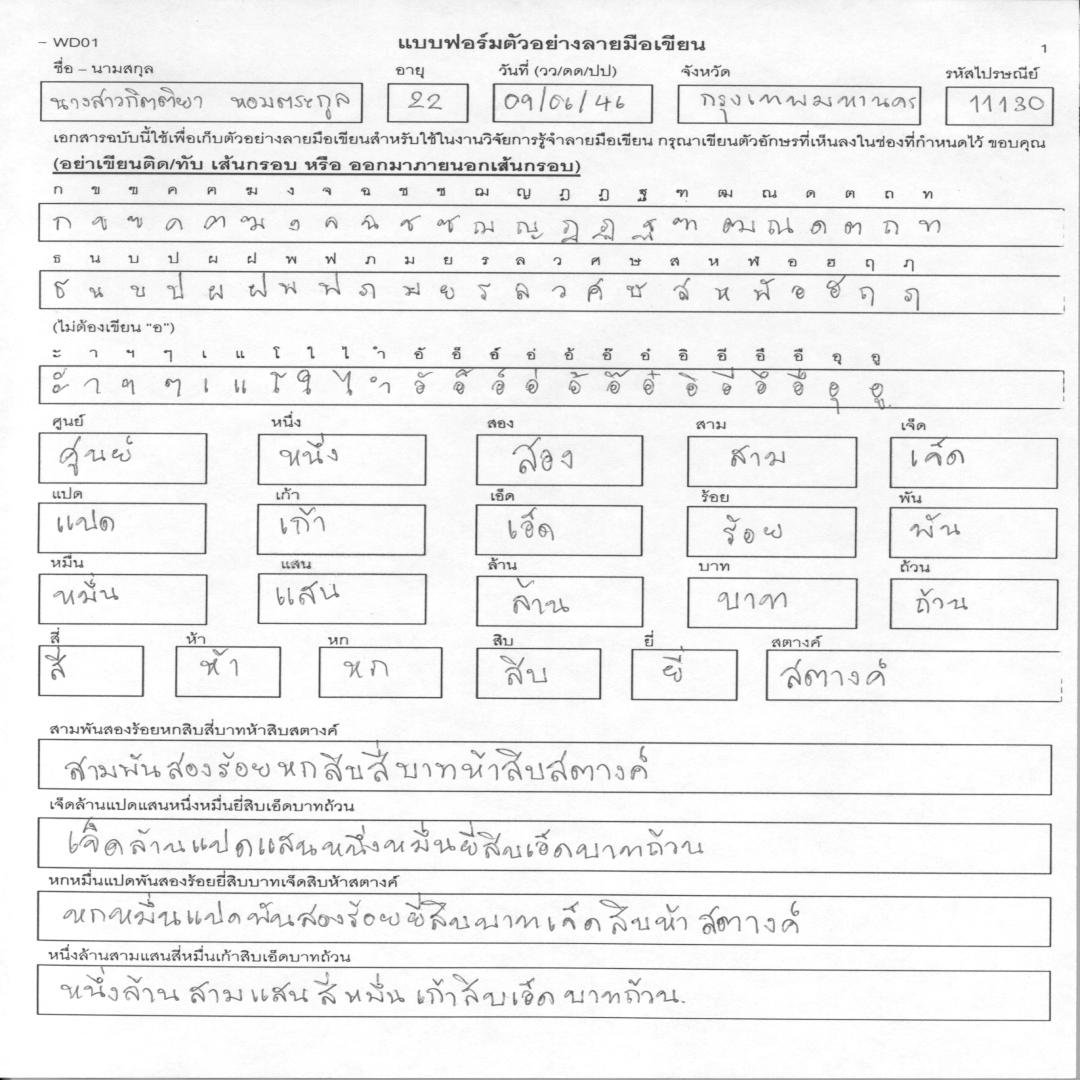 - WD01 แบบฟอร์มตัวอย่างลายมือเขียน 1
ชื่อ - นามสกุล อายุ วันที่ (วว/ดด/ปป) จังหวัด รหัสไปรษณีย์
นางสาวกิตติยา หอมตระกูล 22 09/06/46 กรุงเทพมหานคร 11130
เอกสารฉบับนี้ใช้เพื่อเก็บตัวอย่างลายมือเขียนสำหรับใช้ในงานวิจัยการรู้จำลายมือเขียน กรุณาเขียนตัวอักษรที่เห็นลงในช่องที่กำหนดไว้ ขอบคุณ
(อย่าเขียนติด/ทับ เส้นกรอบ หรือ ออกมาภายนอกเส้นกรอบ)
ก ข ฃ ค ฅ ฆ ง จ ฉ ช ซ ฌ ญ ฎ ฏ ฐ ฑ ฒ ณ ด ต ถ ท
ก ข ฃ ค ฅ ฆ ง จ ฉ ช ซ ฌ ญ ฎ ฏ ฐ ฑ ฒ ณ ด ต ถ ท
ธ น บ ป ผ ฝ พ ฟ ภ ม ย ร ล ว ศ ษ ส ห ฬ อ ฮ ฤ ฦ
ธ น บ ป ผ ฝ พ ฟ ภ ม ย ร ล ว ศ ษ ส ห ฬ อ ฮ ฤ ฦ
(ไม่ต้องเขียน "อ")
ะ า ฯ ๆ เ แ โ ใ ไ ำ อั อ็ อ์ อ่ อ้ อ๊ อ๋ อิ อี อึ อื อุ อู
ะ า ฯ ๆ เ แ โ ใ ไ ำ อั อ็ อ์ อ่ อ้ อ๊ อ๋ อิ อี อึ อื อุ อู
ศูนย์ หนึ่ง สอง สาม เจ็ด
ศูนย์ หนึ่ง สอง สาม เจ็ด
แปด เก้า เอ็ด ร้อย พัน
แปด เก้า เอ็ด ร้อย พัน
หมื่น แสน ล้าน บาท ถ้วน
หมื่น แสน ล้าน บาท ถ้วน
สี่ ห้า หก สิบ ยี่ สตางค์
สี่ ห้า หก สิบ ยี่ สตางค์
สามพันสองร้อยหกสิบสี่บาทห้าสิบสตางค์
สามพันสองร้อยหกสิบสี่บาทห้าสิบสตางค์
เจ็ดล้านแปดแสนหนึ่งหมื่นยี่สิบเอ็ดบาทถ้วน
เจ็ดล้านแปดแสนหนึ่งหมื่นยี่สิบเอ็ดบาทถ้วน
หกหมื่นแปดพันสองร้อยยี่สิบบาทเจ็ดสิบห้าสตางค์
หกหมื่นแปดพันสองร้อยยี่สิบบาทเจ็ดสิบห้า สตางค์
หนึ่งล้านสามแสนสี่หมื่นเก้าสิบเอ็ดบาทถ้วน
หนึ่งล้าน สามแสน สี่หมื่น เก้าสิบเอ็ด บาทถ้วน.